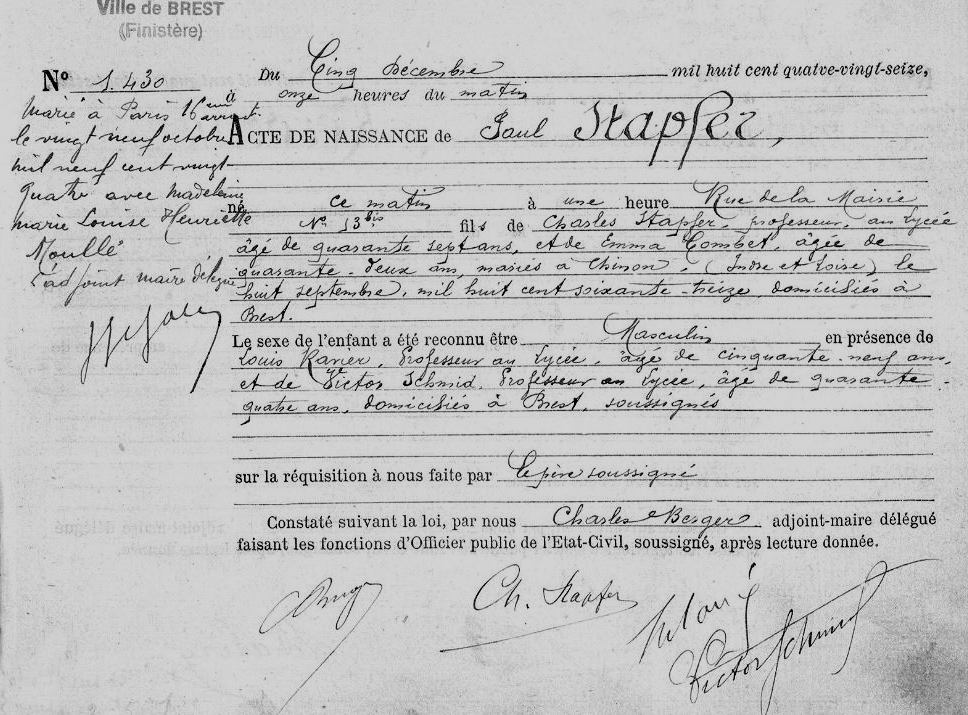 Ville de BREST
(Finistère)
N° 1.430
Du Cinq Décembre mil huit cent quatre-vingt-seize,
à onze heures du matin
ACTE DE NAISSANCE de Paul Stapfer,
né ce matin à une heure Rue de la Mairie
N° 13 bis fils de Charles Stapfer, professeur au Lycée
âgé de quarante sept ans, et de Emma Combet, âgée de
quarante-deux ans, mariés à Chinon, (Indre et Loire) le
huit septembre, mil huit cent soixante-treize, domiciliés à
Brest.
Le sexe de l'enfant a été reconnu être Masculin en présence de
Louis Professeur au Lycée, âgé de cinquante-neuf ans,
et de Victor Schmid, Professeur au Lycée, âgé de quarante-
quatre ans, domiciliés à Brest, soussignés
sur la réquisition à nous faite par le père soussigné
Constaté suivant la loi, par nous Charles Berger adjoint-maire délégué
faisant les fonctions d'Officier public de l'Etat-Civil, soussigné, après lecture donnée.
marié à Paris 16eme arront.
le vingt neuf octobre
mil neuf cent vingt
quatre avec Madeleine
Marie Louise Henriette
Moullé
L'adjoint maire délégué
Ch. Stapfer
Victor Schmid